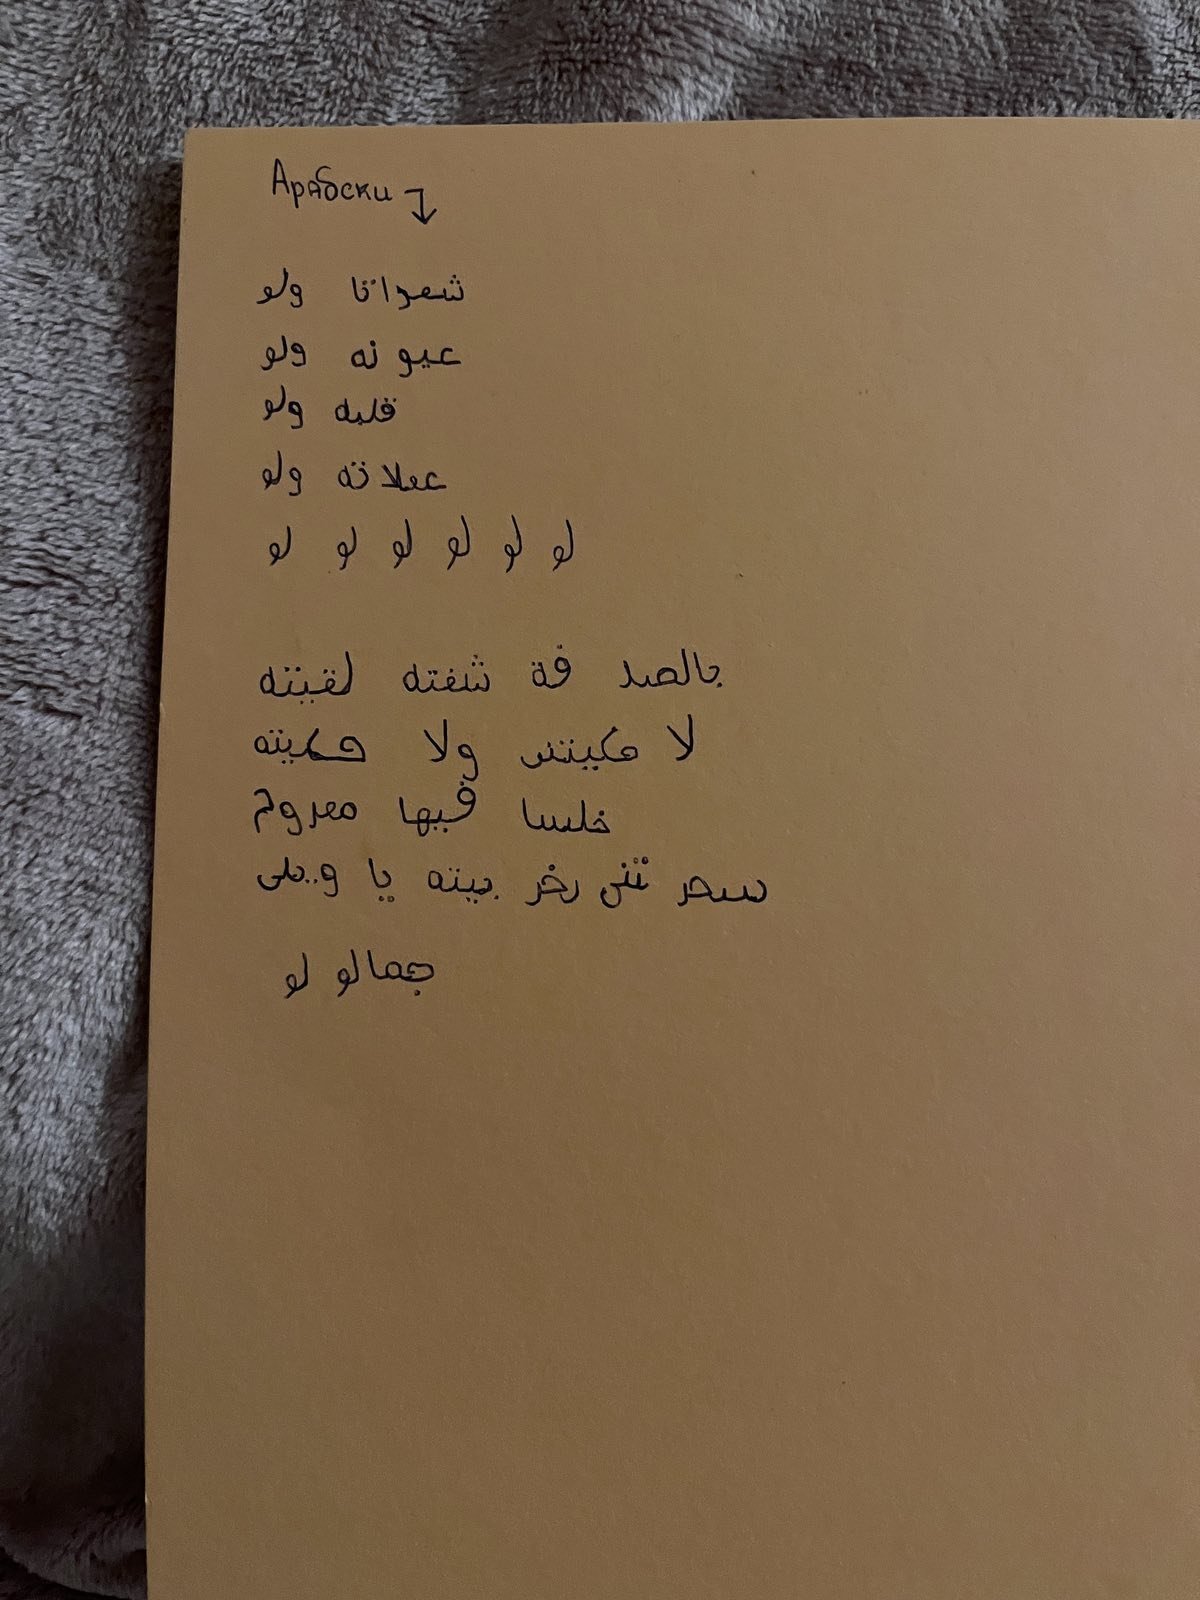 Арабски
شعراتا ولو
عيونه ولو
قلبه ولو
عملاته ولو
لو لو لو لو لو لو
بالصد فة شفته لقيته
لا حكيتنى ولا حكيته
خلسا فيها معروح
سحر تنى رخر بيته يا ويلى
جمالو لو